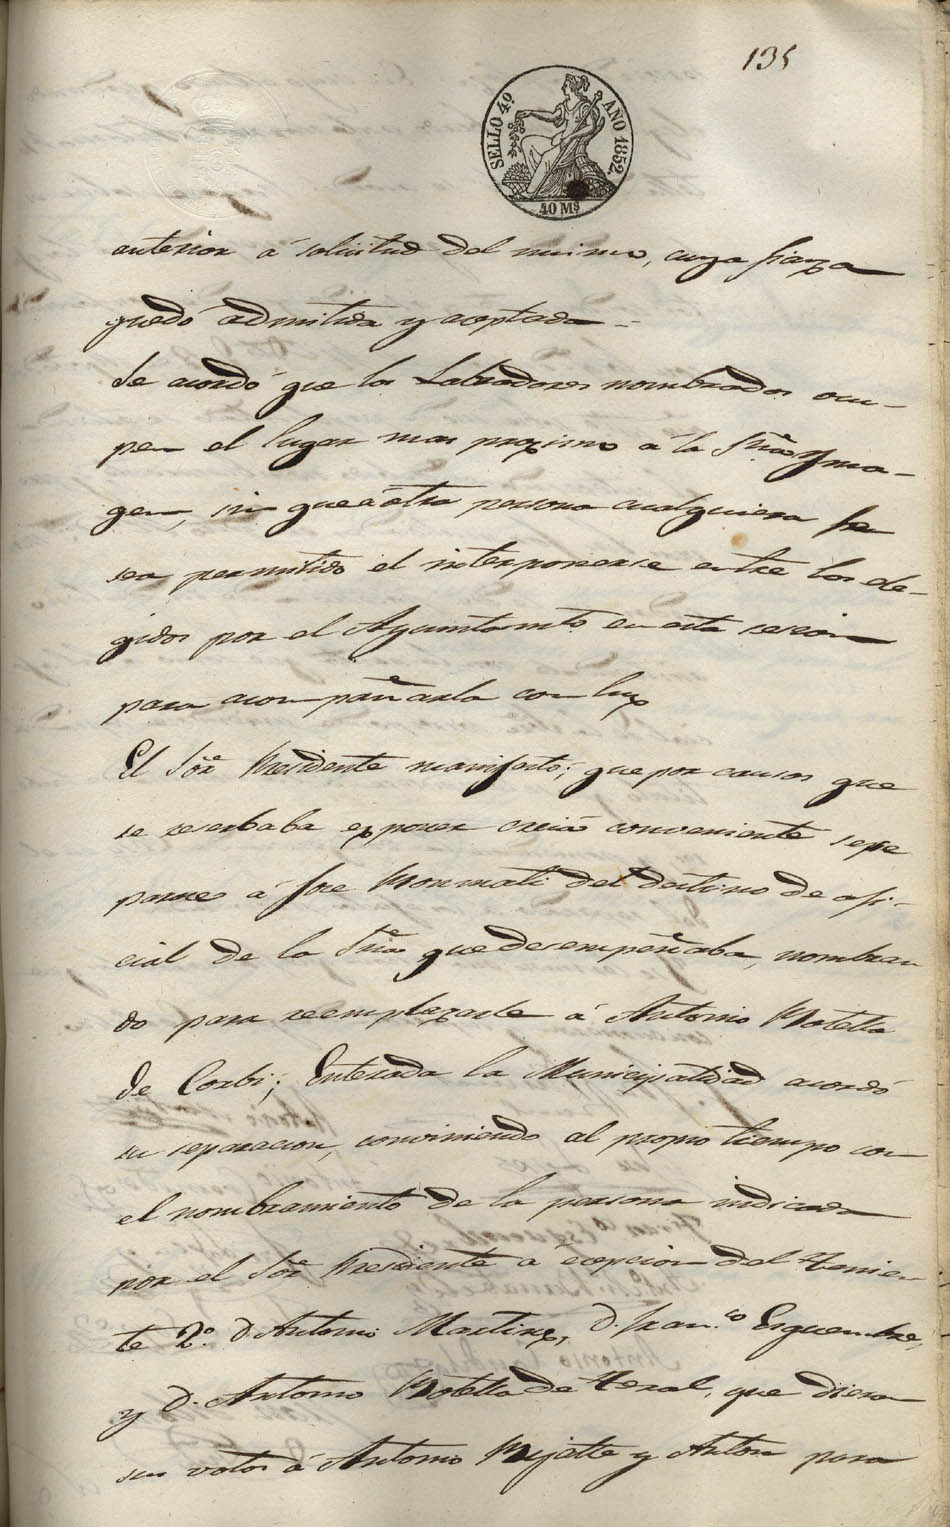 135
SELLO 4º AÑO 1852.
40 Ms
anterior á solicitud del mismo, cuya fianza
quedó admitida y aceptada -
Se acordó que los Labradores nombrados ocu-
pen el lugar mas proximo á la Sta Yma-
gen, sin que á otra persona cualquiera le
sea permitido el interponerse entre los ele-
gidos por el Ayuntamto en esta sesion
para acompañarla con luz
El Sor Presidente manifestó; que por causas que
se reserbaba exponer creia conveniente sepe
parase á José Monmati del destino de ofi-
cial de la Sria que desempeñaba, nombran
do para reemplazarle á Antonio Botella
de Corbi; Enterada la Municipalidad acordó
su separacion, conviniendo al propio tiempo con
el nombramiento de la persona indicada
por el Sor Presidente á ecepcion del Tenien
te 2º D. Antonio Martinez, D. Franco Esquembre,
y D. Antonio Botella de Teral, que dieron
sus votos á Antonio y Anton para